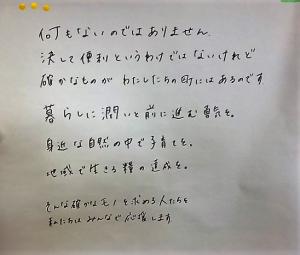 何もないのではありません
決して便利というわけではないけれど
確かなものが わたしたちの町にはあるのです
暮らしに潤いと前に進む勇気を。
身近な自然の中で子育てを。
地域で生きる糧の達成を。
そんな確かなモノを求める人たちを
私たちは みんなで応援します